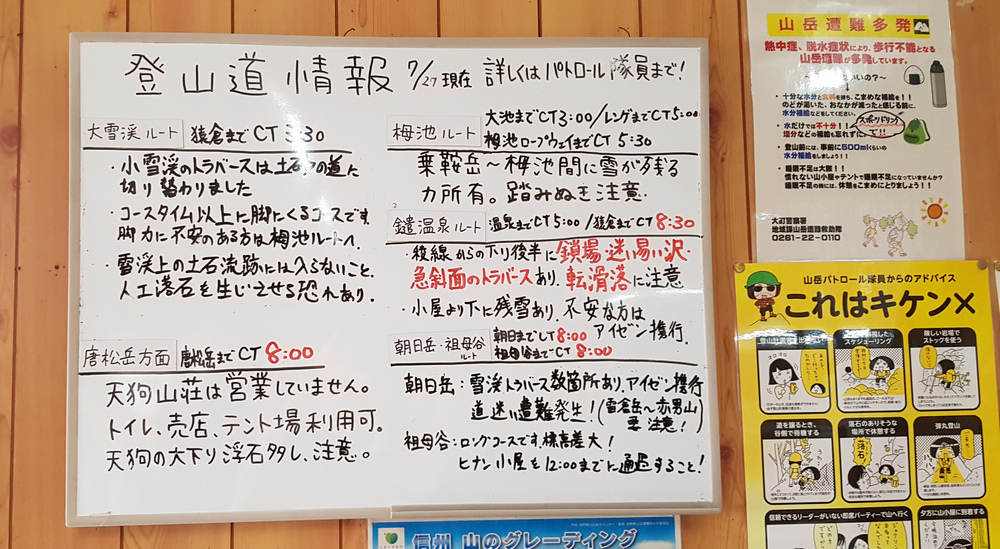 登山道情報 7/27現在 詳しくはパトロール隊員まで!
大雪渓ルート 猿倉までCT 3:30
・小雪渓のトラバースは土石の道に
切り替わりました
・コースタイム以上に脚にくるコースです。
脚力に不安のある方は栂池ルートへ。
・雪渓上の土石流跡には入らないこと。
人工落石を生じさせる恐れあり。
唐松岳方面 唐松岳までCT 8:00
天狗山荘は営業していません。
トイレ、売店、テント場利用可。
天狗の大下り浮石多し、注意。
栂池ルート 大池までCT3:00/レンゲまでCT5:00
栂池ロープウェイまでCT 5:30
乗鞍岳〜栂池間に雪が残る
カ所有。踏みぬき注意
鑓温泉ルート 温泉までCT5:00/猿倉までCT 8:30
・稜線からの下り後半に鎖場・迷い易い沢・
急斜面のトラバースあり、転滑落に注意
・小屋より下に残雪あり、不安な方は
アイゼン携行。
朝日岳・祖母谷ルート 朝日までCT 8:00
祖母谷までCT 8:00
朝日岳:雪渓トラバース数箇所あり、アイゼン携行
道迷い遭難発生!(雪倉岳〜赤男山
要注意!)
祖母谷:ロングコースです、標高差大!
ヒナン小屋を12:00までに通過すること!
山岳遭難多発
熱中症、脱水症状により、歩行不能となる
山岳遭難が多発しています。
いいの?〜
・十分な水分と食料を持ち、こまめな補給を!!
のどが渇いた、おなかが減ったと感じる前に、
水分補給などをしてください。
スポーツドリンクで!!
・水だけでは不十分!!
塩分などの補給も忘れずに
・登山前には、事前に500mlくらいの
水分補給をしましょう!!
・睡眠不足は大敵!!
慣れない山小屋やテントで睡眠不足になっていませんか?
睡眠不足の時には、休憩をこまめにとりましょう!!
大町警察署
地域課山岳遭難救助隊
0261-22-0110
山岳パトロール隊員からのアドバイス
これはキケン×
スケジューリング
険しい岩場で
ストックを使う
道を譲るとき、
谷側で待機する
落石のありそうな
場所で休憩する
落石
弾丸登山
信頼できるリーダーがいない即席パーティーで山へ行く
夕方に山小屋に到着する
信州 山のグレーディング